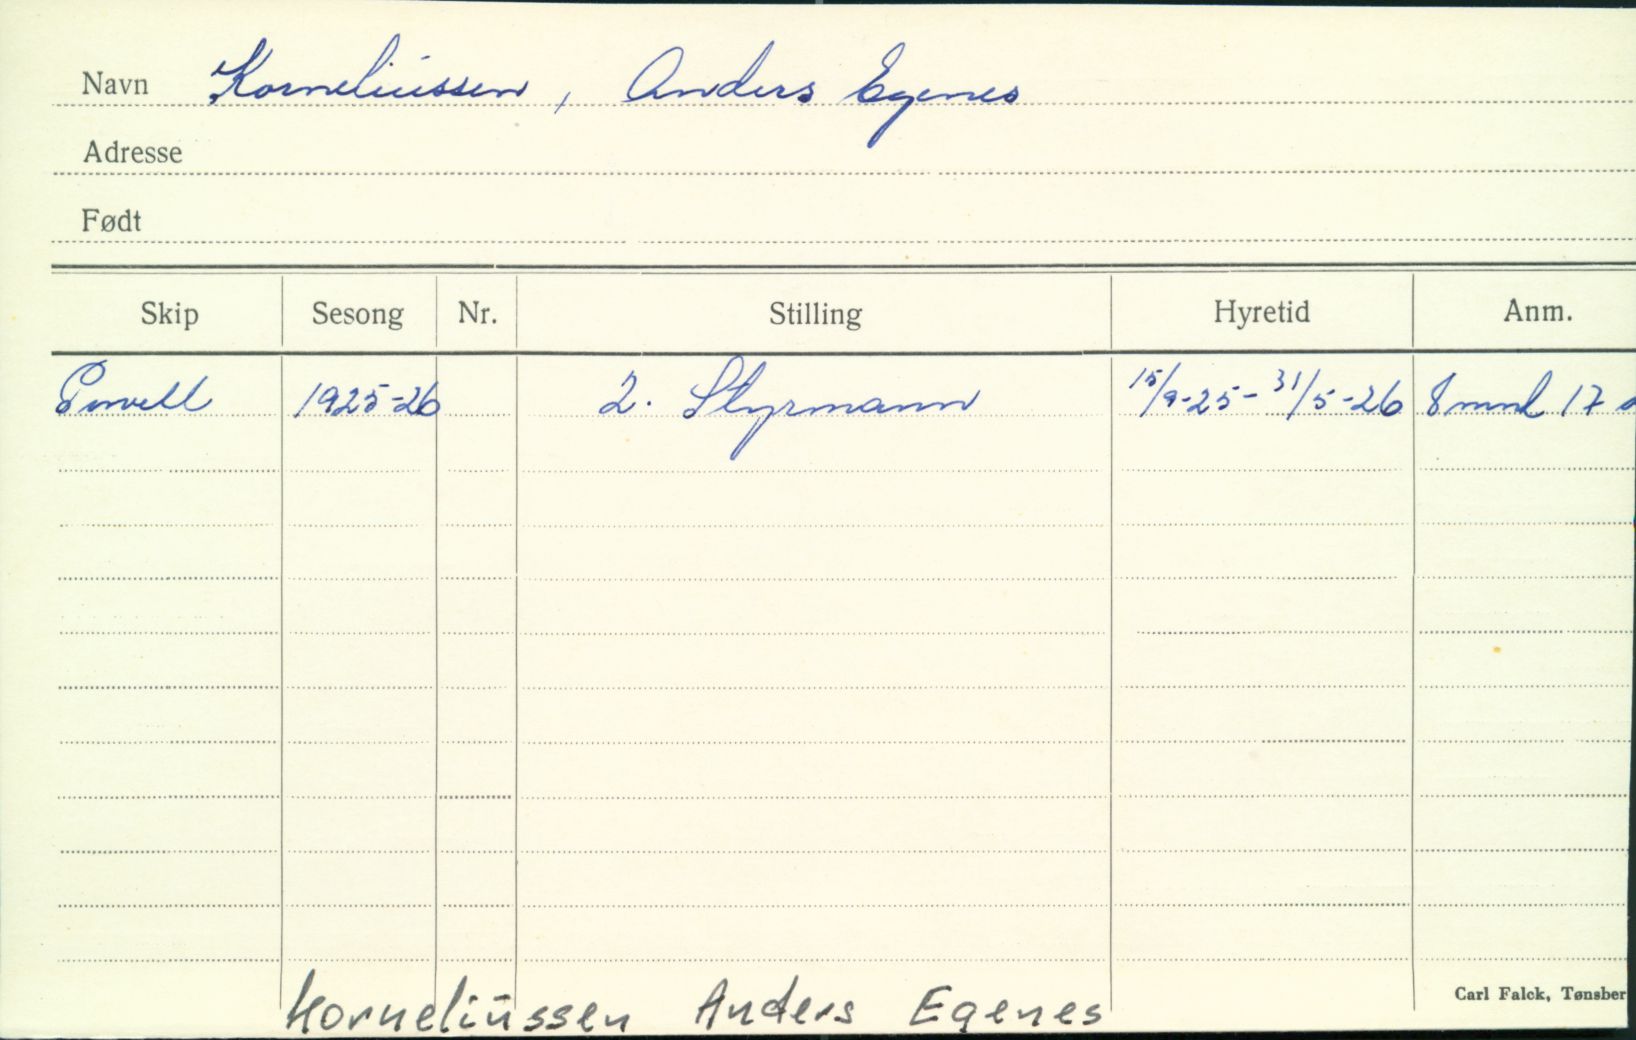 Navn Korneliussen, Anders Egenes
Adresse
Født
Skip Sesong Nr. Stilling Hyretid Anm.
1925-26 2. Styrmann 15/9-25 - 31/5-26 8 mnd 17
Korneliussen Anders Egenes
Carl Falck, Tønsber